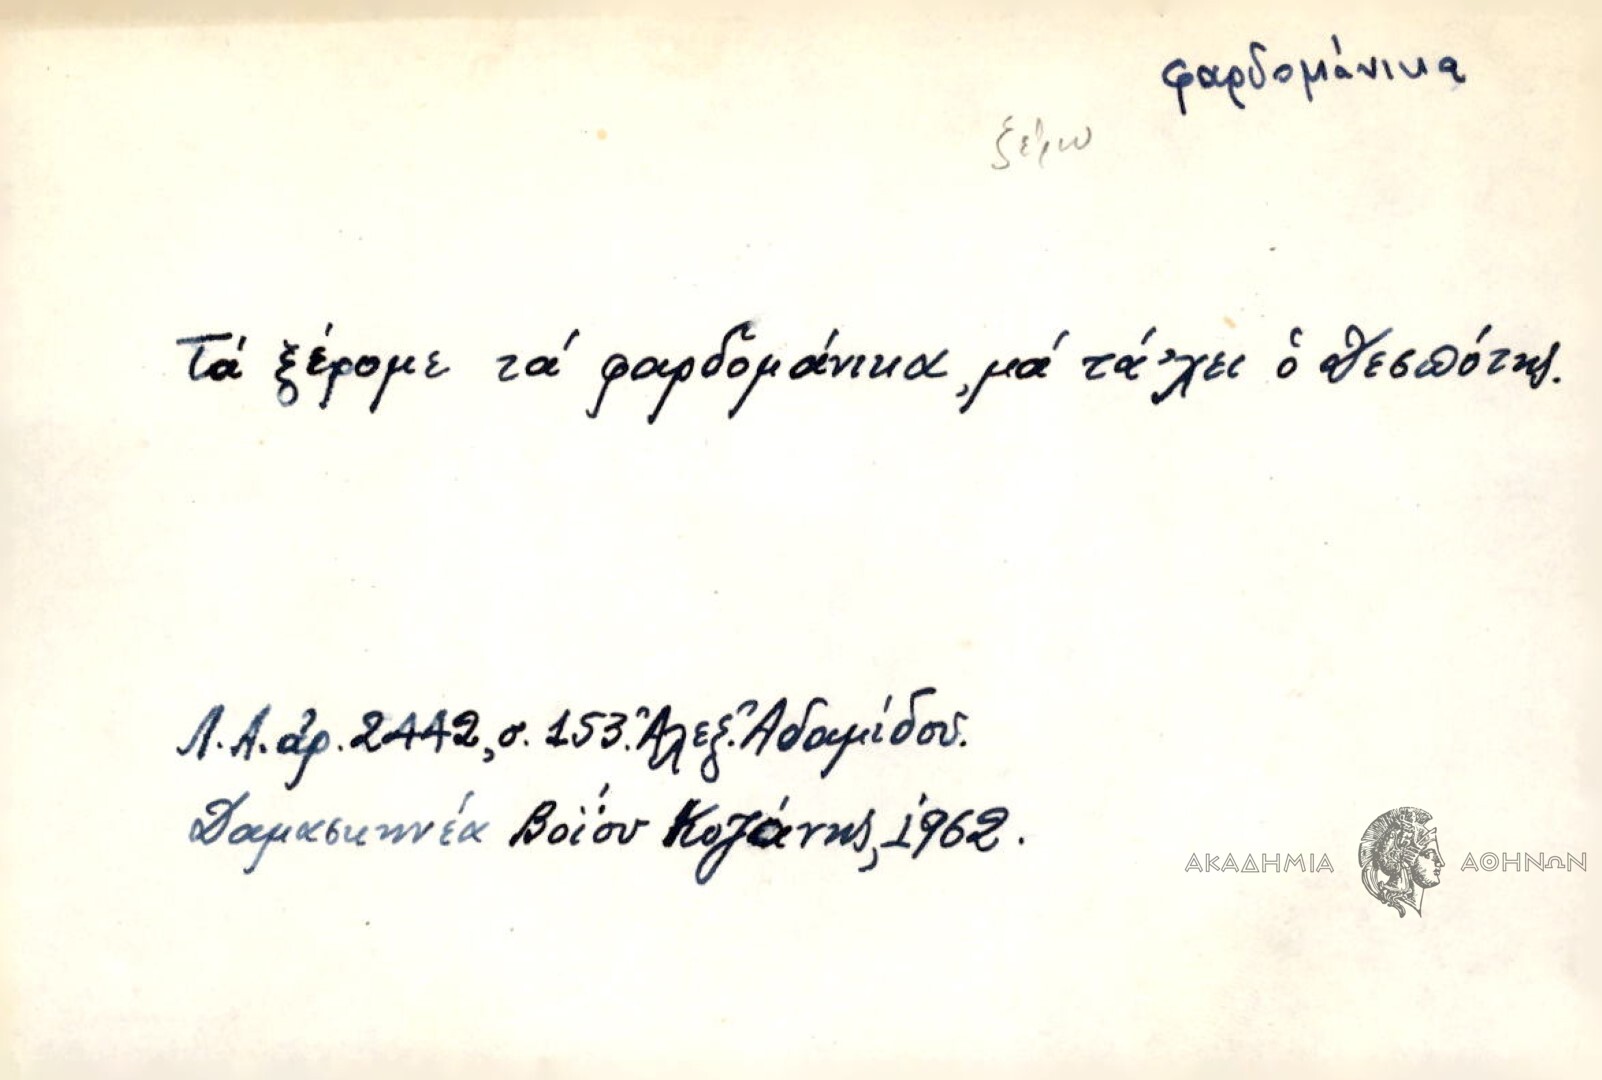 φαρδομάνικα
ξέρω
Τά ξέρομε τά φαρδομάνικα, μά τά 'χει ὁ Δεσπότης.
Λ.Α. ἀρ. 2442, σ. 153. Ἀλεξ. Ἀδαμίδου.
Δαμασκηνέα Βοΐου Κοζάνης, 1962.
ΑΚΑΔΗΜΙΑ ΑΘΗΝΩΝ